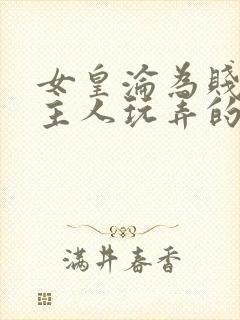 女皇淪為賤
主人玩弄的
滿井春香